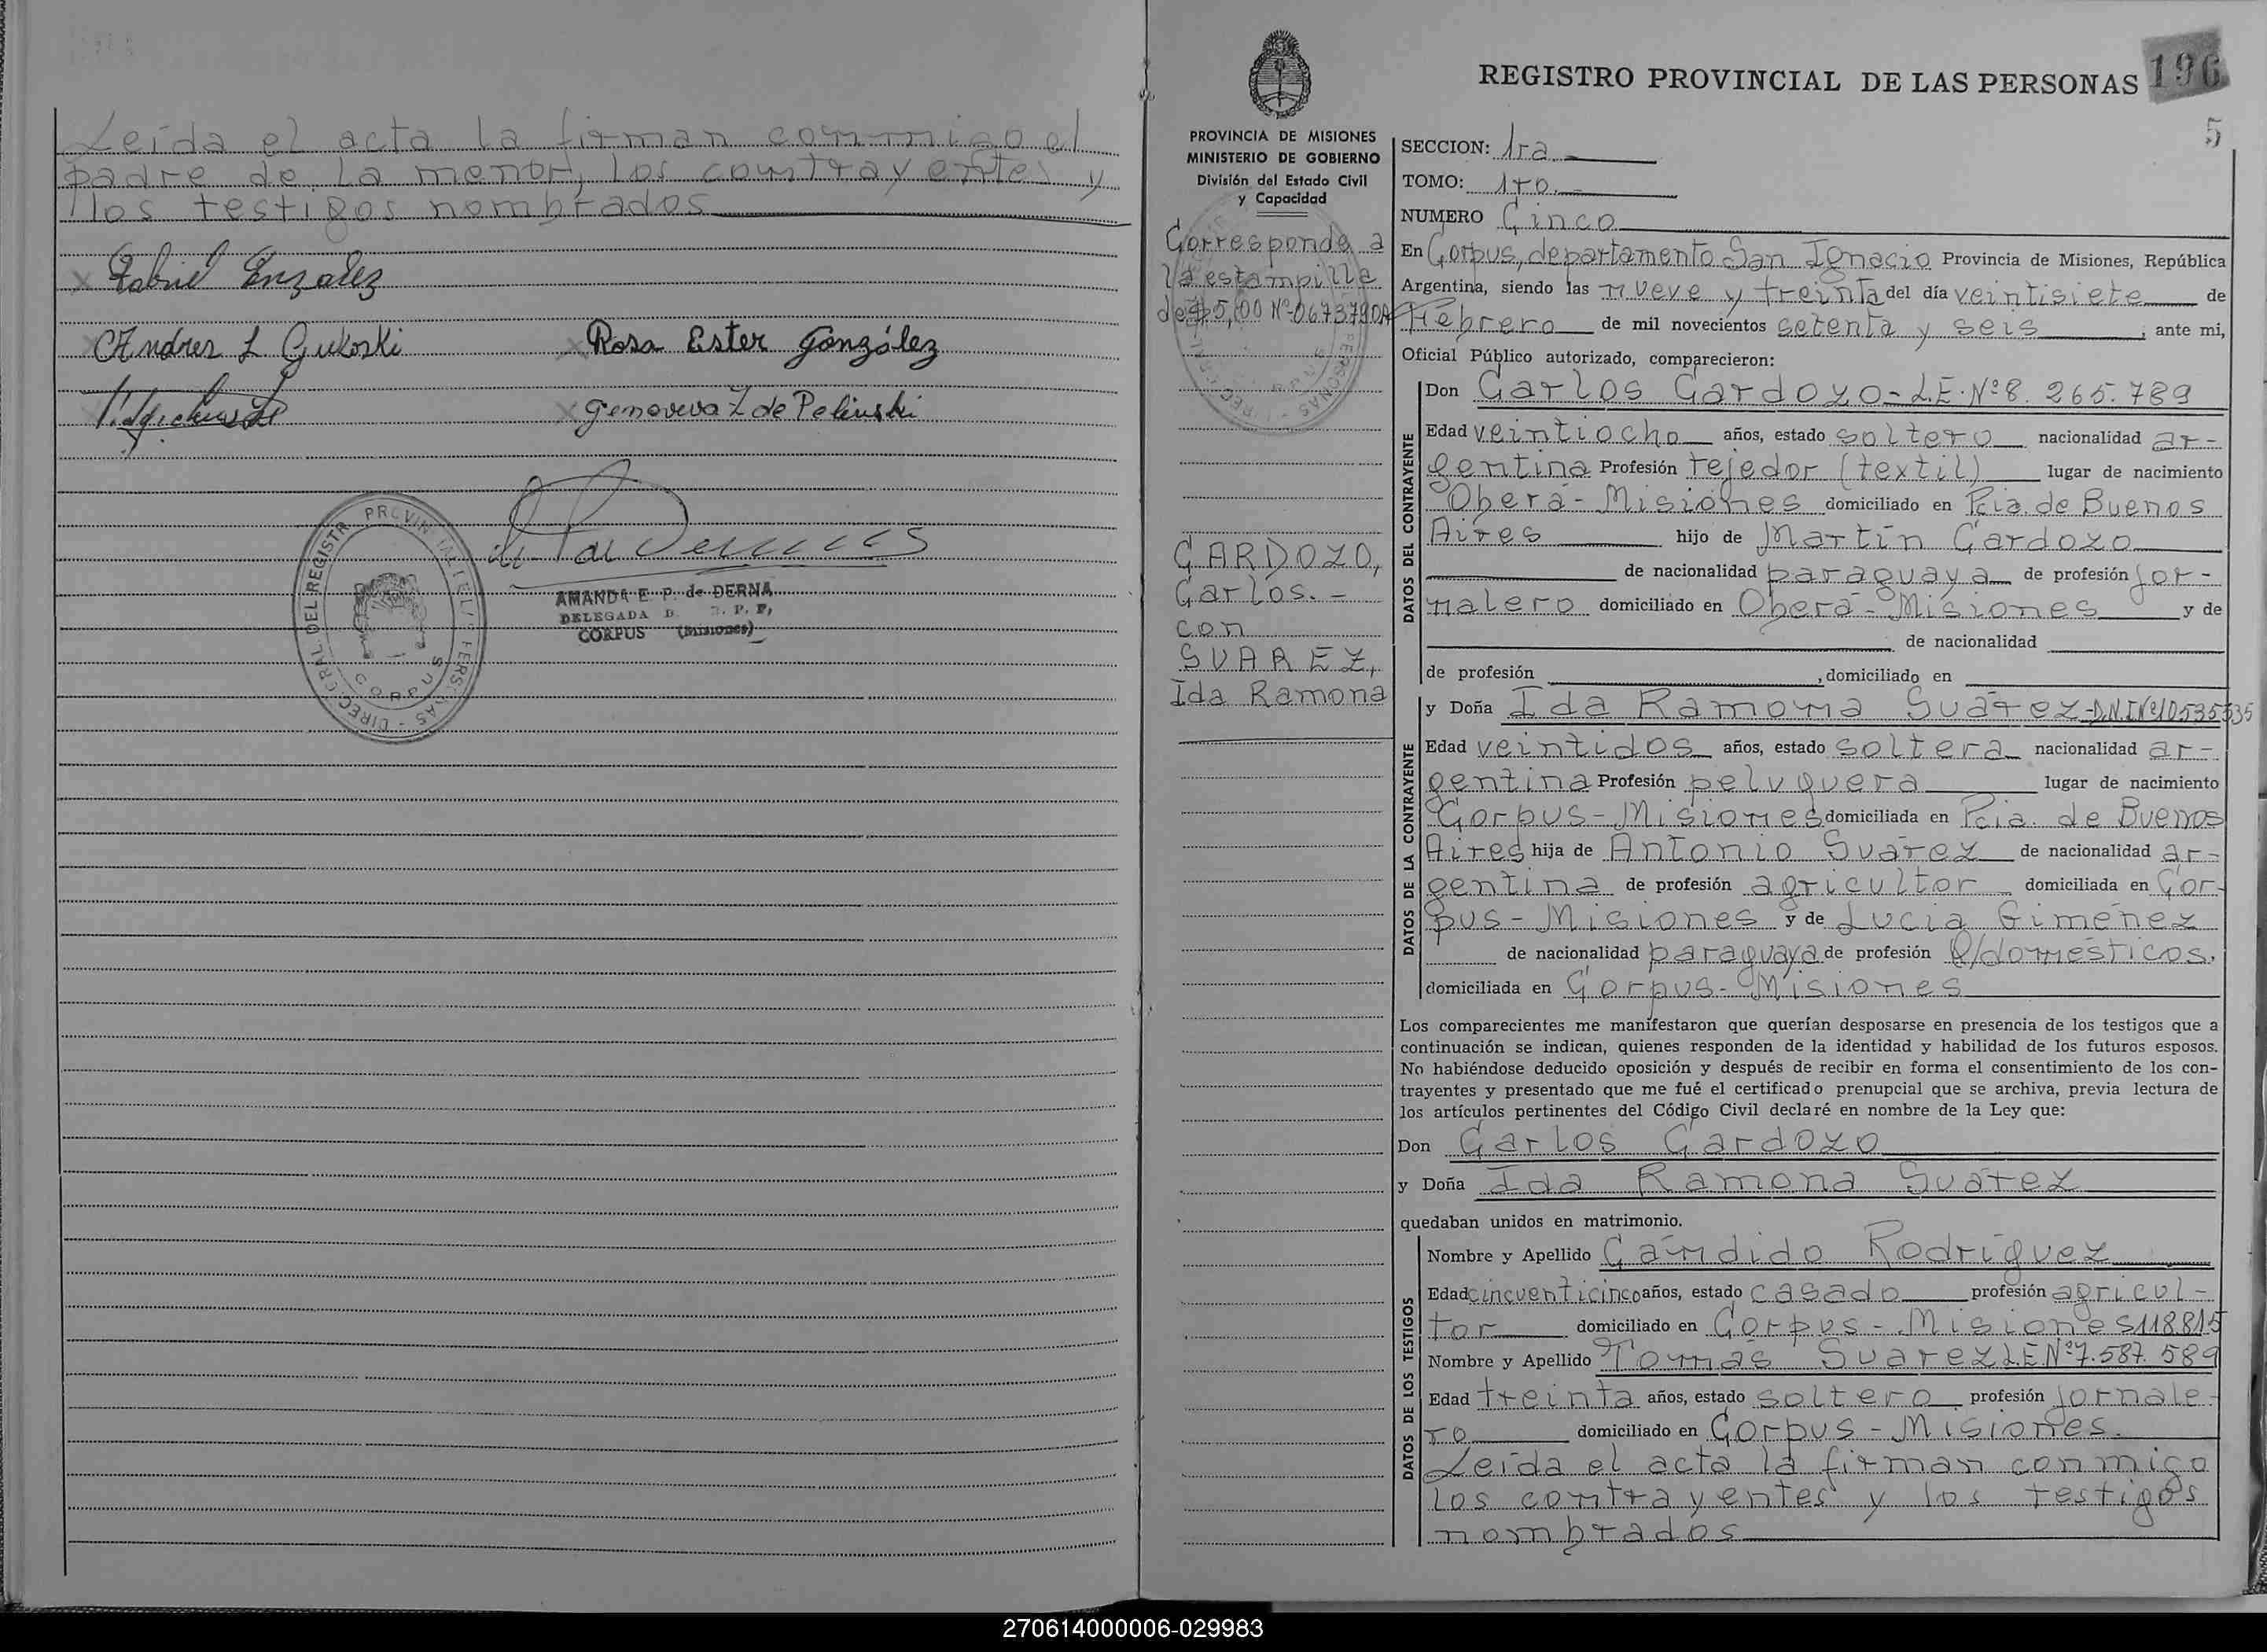 Leída el acta la firman conmigo el
padre de la menor, los contrayentes y
los testigos nombrados
Andres L Gukoski
Rosa Ester González
Genoveva Z de Pelinski
AMANDA E. P. de DERNA
DELEGADA
CORPUS (Misiones)
REGISTRO PROVINCIAL DE LAS PERSONAS
196
5
PROVINCIA DE MISIONES
MINISTERIO DE GOBIERNO
División del Estado Civil
y Capacidad
Corresponde a
la estampilla
de $5,00 Nº-0673790A
CARDOZO,
Carlos.-
con
SUAREZ,
Ida Ramona
SECCION: 1ra
TOMO: 1ro.-
NUMERO Cinco
En Corpus, departamento San Ignacio Provincia de Misiones, República
Argentina, siendo las nueve y treinta del día veintisiete de
Febrero de mil novecientos setenta y seis ; ante mi,
Oficial Público autorizado, comparecieron:
DATOS DEL CONTRAYENTE
Don Carlos Cardozo-L.E.Nº8.265.789
Edad veintiocho años, estado soltero nacionalidad ar-
gentina Profesión tejedor (textil) lugar de nacimiento
Oberá-Misiones domiciliado en Pcia. de Buenos
Aires hijo de Martín Cardozo
de nacionalidad paraguaya de profesión jor-
nalero domiciliado en Oberá-Misiones y de
de nacionalidad
de profesión , domiciliado en
DATOS DE LA CONTRAYENTE
y Doña Ida Ramona Suárez-D.N.I.Nº10535535
Edad veintidos años, estado soltera nacionalidad ar-
gentina Profesión peluquera lugar de nacimiento
Corpus-Misiones domiciliada en Pcia. de Buenos
Aires hija de Antonio Suárez de nacionalidad ar-
gentina de profesión agricultor domiciliada en Cor-
pus-Misiones y de Lucia Giménez
de nacionalidad paraguaya de profesión q/domésticos.
domiciliada en Corpus-Misiones
Los comparecientes me manifestaron que querían desposarse en presencia de los testigos que a
continuación se indican, quienes responden de la identidad y habilidad de los futuros esposos.
No habiéndose deducido oposición y después de recibir en forma el consentimiento de los con-
trayentes y presentado que me fué el certificado prenupcial que se archiva, previa lectura de
los artículos pertinentes del Código Civil declaré en nombre de la Ley que:
Don Carlos Cardozo
y Doña Ida Ramona Suárez
quedaban unidos en matrimonio.
DATOS DE LOS TESTIGOS
Nombre y Apellido Cándido Rodríguez
Edad cincuenticinco años, estado casado profesión agricul-
tor domiciliado en Corpus-Misiones 118815
Nombre y Apellido Tomás Suarez L.E.Nº7.587.589
Edad treinta años, estado soltero profesión jornale-
ro domiciliado en Corpus-Misiones.
Leída el acta la firman conmigo
los contrayentes y los testigos
nombrados
270614000006-029983